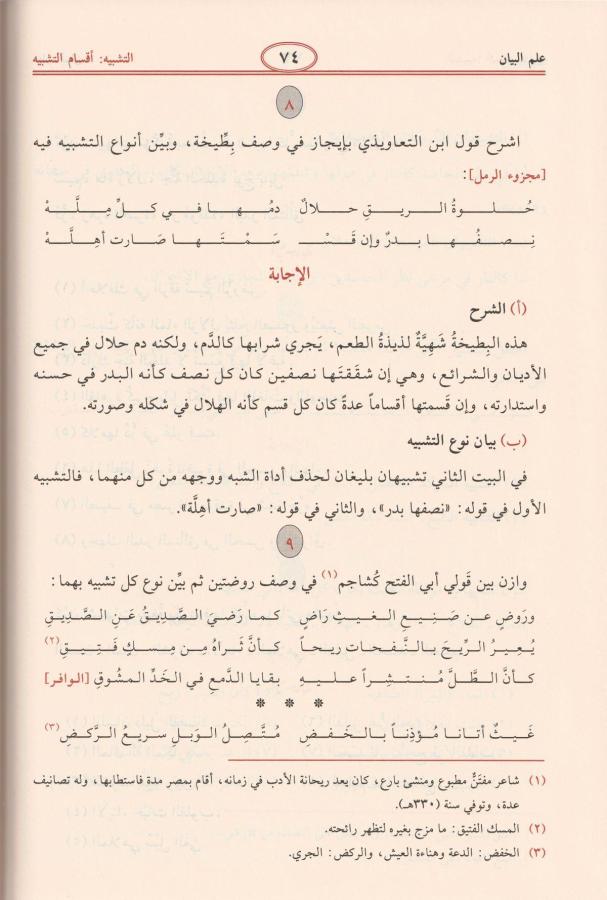 علم البيان ٧٤ التشبيه: أقسام التشبيه
٨
اشرح قول ابن التعاويذي بإيجاز في وصف بِطِّيخة، وبيِّن أنواع التشبيه فيه
[مجزوء الرمل]:
حُـلـوةُ الـريـقِ حـلالٌ دمُـهـا فـي كـلِّ مِـلَّـهْ
نِـصـفُـهـا بـدرٌ وإن قَـسْـ ـسَـمْـتَـهـا صَـارت أهِلَّـهْ
الإجابة
(أ) الشرح
هذه البِطيخةُ شَهِيَّةٌ لذيذةُ الطعم، يَجري شرابها كالدَّم، ولكنه دم حلال في جميع
الأديان والشرائع، وهي إن شقَقتَها نصفين كان كل نصف كأنه البدر في حسنه
واستدارته، وإن قَسمتها أقساماً عدةً كان كل قسم كأنه الهلال في شكله وصورته.
(ب) بيان نوع التشبيه
في البيت الثاني تشبيهان بليغان لحذف أداة الشبه ووجهه من كل منهما، فالتشبيه
الأول في قوله: «نصفها بدر»، والثاني في قوله: «صارت أهِلَّة».
٩
وازن بين قَولي أبي الفتح كُشاجم(١) في وصف روضتين ثم بيِّن نوع كل تشبيه بهما:
ورَوضٍ عـن صَـنِيـعِ الـغيـثِ رَاضٍ كـمـا رَضـيَ الـصَّـديـقُ عَـنِ الـصَّـدِيـقِ
يُـعِيـرُ الـرِّيـحَ بـالـنَّـفـحـاتِ ريـحـاً كـأنَّ ثَـراهُ مِـن مِـسـكٍ فَـتِـيـقِ(٢)
كـأنَّ الـطَّـلَّ مُـنـتـشِـراً عـلـيـهِ بـقايا الدَّمعِ في الخَدِّ المشُوقِ [الوافر]
* * *
غَـيـثٌ أتـانـا مُـؤذِنـاً بـالـخَـفـضِ مُـتَّـصِلُ الـوَبـلِ سَـريـعُ الـرَّكـضِ(٣)
(١) شاعر مفتَنٌّ مطبوع ومنشئ بارع، كان يعد ريحانة الأدب في زمانه، أقام بمصر مدة فاستطابها، وله تصانيف
عدة، وتوفي سنة (٣٣٠هـ).
(٢) المسك الفتيق: ما مزج بغيره لتظهر رائحته.
(٣) الخفض: الدعة وهناءة العيش، والركض: الجري.